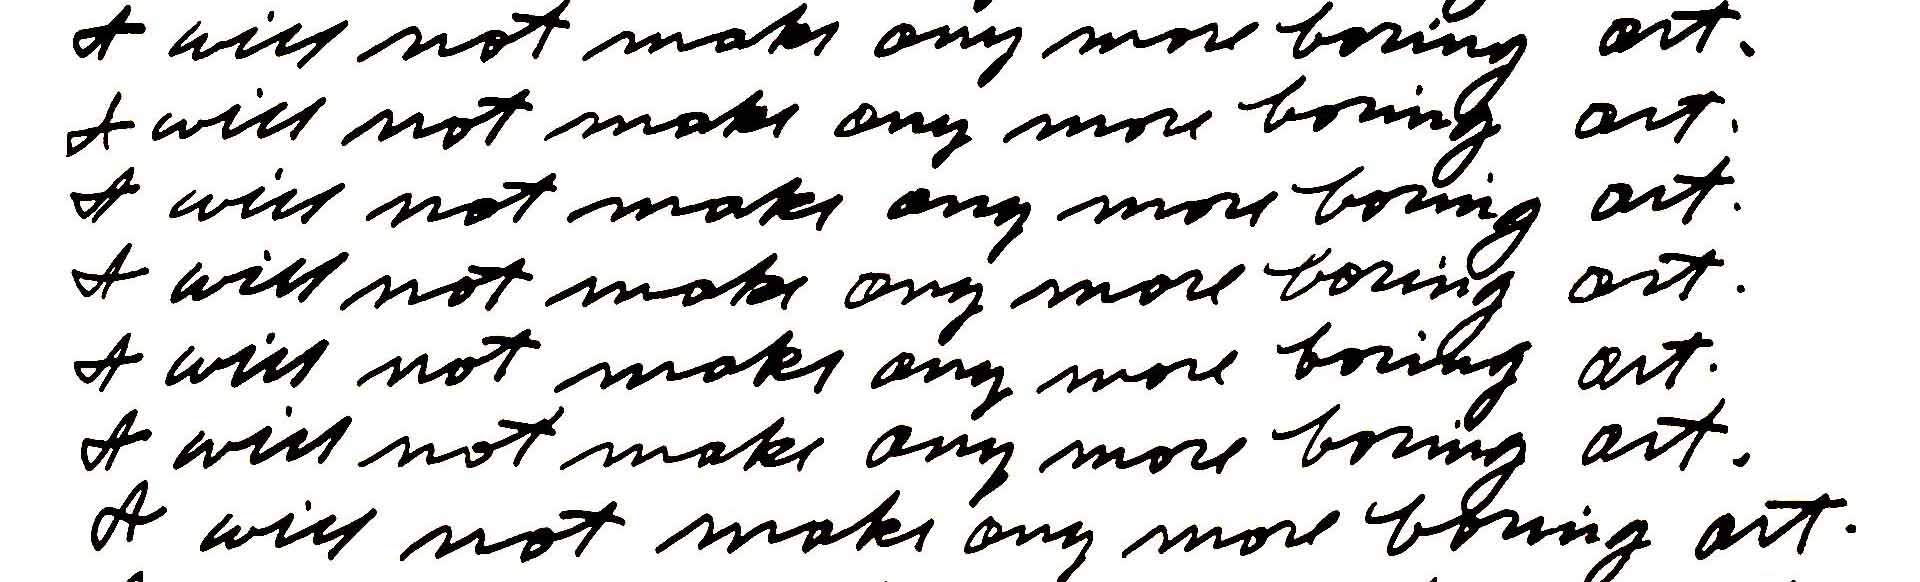 I will not make any more boring art.
I will not make any more boring art.
I will not make any more boring art.
I will not make any more boring art.
I will not make any more boring art.
I will not make any more boring art.
I will not make any more boring art.